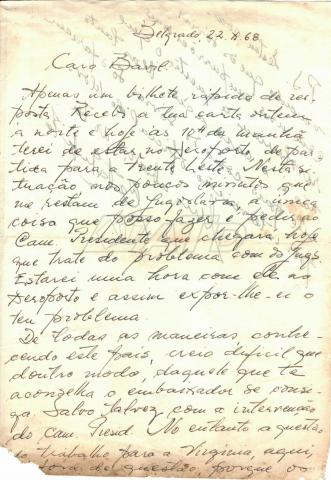 Belgrado, 22.II.68
Caro Basil
Apenas um bilhete rápido de res-
posta. Recebi a tua carta ontem
à noite e hoje às 10h da manhã
terei de estar no Aeroporto de par-
tida para a Frente Leste. Nesta si-
tuação nos poucos minutos que
me restam de Jugoslávia, a única
coisa que posso fazer é pedir ao
Cam. Presidente que chegará hoje
que trate do problema com os Jugs.
Estarei uma hora com ele no
Aeroporto e assim expor-lhe-ei o
teu problema.
De todas as maneiras, conhe-
cendo este país, creio difícil que
doutro modo, daquele que te
aconselha o embaixador se consi-
ga. Salvo talvez, com a intervenção
do cam. Presid. No entanto a questão
do trabalho para a Virgínia, aqui,
fora de questão, porque os